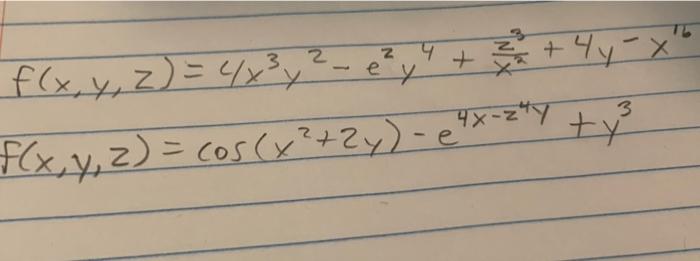 f(x,y,z) = 4x³y² - e²y⁴ + z³/x² + 4y - x¹⁶
f(x,y,z) = cos(x²+2y) - e^(4x-z⁴y) + y³